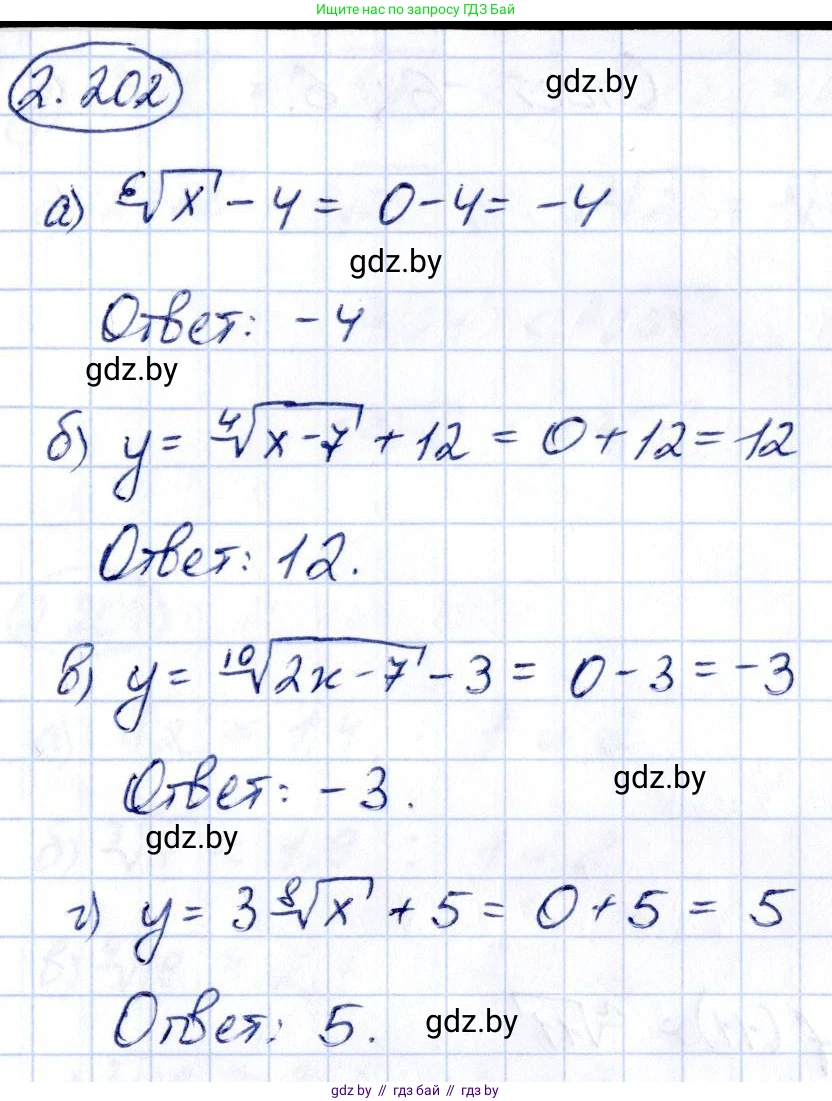 Ищите нас по запросу ГДЗ Бай
2.202
gdz.by
а) ⁶√x - 4 = 0 - 4 = -4
gdz.by
Ответ: -4
gdz.by
б) y = ⁴√(x-7) + 12 = 0 + 12 = 12
Ответ: 12.
в) y = ¹⁰√(2x-7) - 3 = 0 - 3 = -3
Ответ: -3.
gdz.by
gdz.by
г) y = 3 ⁸√x + 5 = 0 + 5 = 5
Ответ: 5.
gdz.by
gdz.by // гдз бай // гдз by